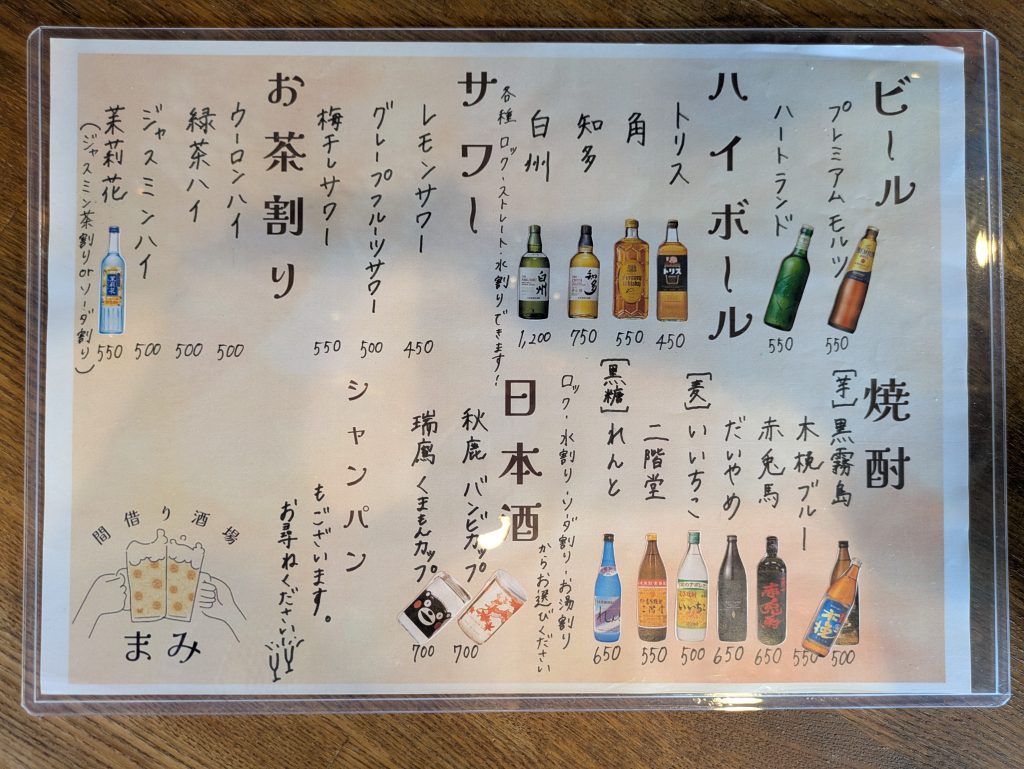 ビール
プレミアムモルツ
550
ハートランド
550
ハイボール
トリス
450
角
550
知多
750
白州
1,200
各種 ロック・ストレート・水割りできます!
サワー
レモンサワー
450
グレープフルーツサワー
500
梅干しサワー
550
お茶割り
ウーロンハイ
500
緑茶ハイ
500
ジャスミンハイ
500
茉莉花
(ジャスミン茶割り or ソーダ割り)
550
焼酎
[芋]黒霧島
500
木挽ブルー
550
赤兎馬
650
だいやめ
650
[麦]いいちこ
500
二階堂
550
[黒糖]れんと
650
ロック・水割り・ソーダ割り・お湯割り
からお選びください
日本酒
秋鹿 バンビカップ
700
瑞鷹 くまもんカップ
700
シャンパン
もございます。
お尋ねください
間借り酒場
まみ
トリス
角
知多
白州
木挽
赤兎馬
いいちこ
二階堂